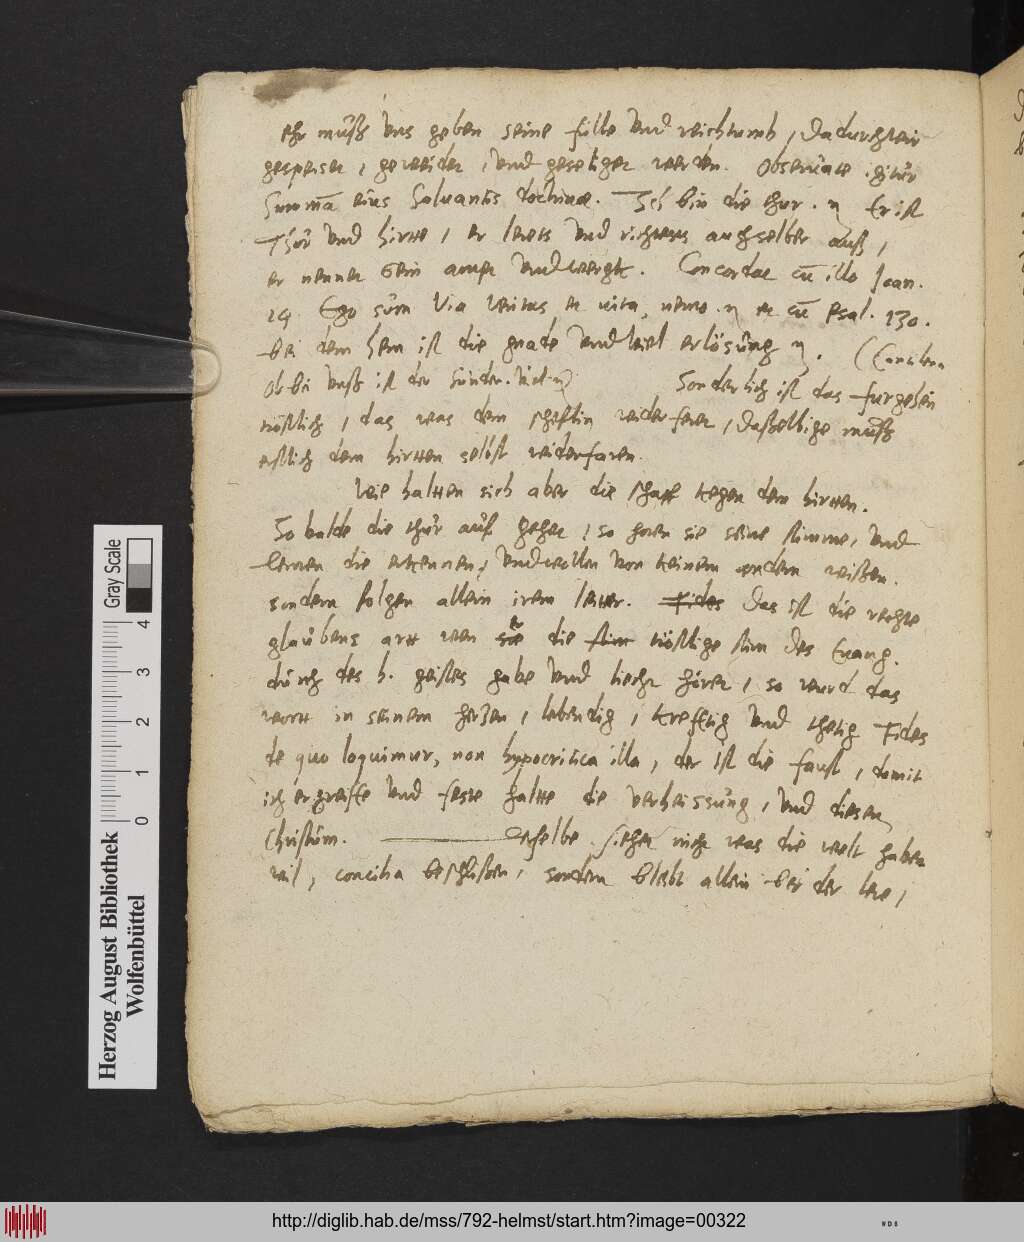 ehr muß uns geben seine fülle und reichtumb, dadurch wir
gespeiset, geweidet, und geseliget werden. Observate igitur
Summā eius Saluantis doctrinae. Ich bin die thur. Er ist
Thur und hirtte, er lerets und richtets auch selber auß,
er nennet sein ampt und wergk. Concordat cū illo Joan.
14 Ego sum Via veritas et vita, nemo et cū psal. 130.
bei dem hern ist die gnade und viel erlösung
Ob bei unß ist der Sünden viel Sonderlich ist das furgeben
tröstlich, das was dem scheflin widerferet, daßelbige muß
erstlich dem hirtten selbst widerfaren.
Wie haltten sich aber die schaff kegen dem hirtten.
So balde die thür auf gehet, so horen sie seine stimme, und
lernen die erkennen, und wollen von keinem andern weißen.
sondern folgen allein irem leitter. Fides Das ist die rechte
glaubens artt wen er die stim tröstlige stim des Evang.
durch des h. geistes gabe und liecht höret, so wurd das
wortt in seinem hertzen, lebendig, krefftig und thetig Fides
de quo loquimur, non hypocritica illa, der ist die faust, domit
ich ergreiffe und feste haltte die verheissung, und diesen
Christum. derselbe siehet nicht was die welt haben
wil, concilia beschlißen, sondern bleibt allein bei der lere,
Herzog August Bibliothek
Wolfenbüttel
Gray Scale
0 1 2 3 4
http://diglib.hab.de/mss/792-helmst/start.htm?image=00322